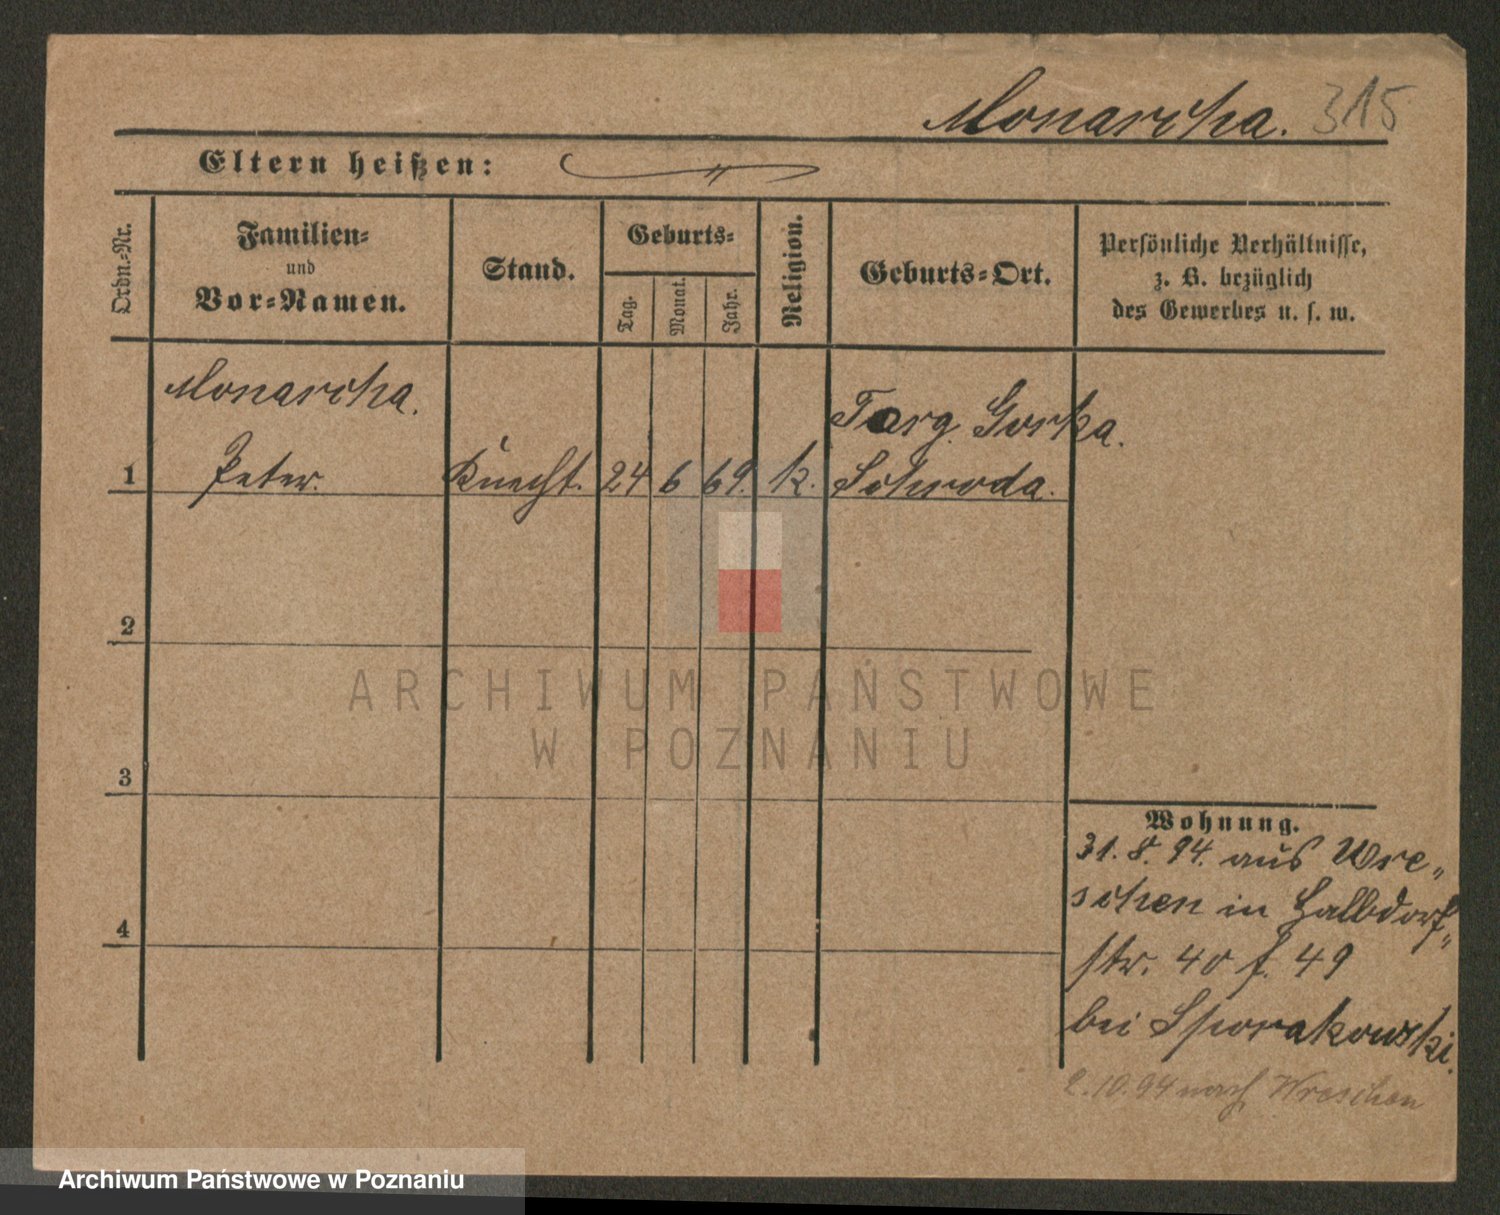 Monarcha. 315
Eltern heißen:
Ordn.-Nr.
Familien-
und
Vor-Namen.
Stand.
Geburts-
Tag.
Monat.
Jahr.
Religion.
Geburts-Ort.
Persönliche Verhältnisse,
z. B. bezüglich
des Gewerbes u. s. w.
Monarcha.
Targ. Gorka.
1 Peter. Knecht. 24 6 69. k. Schroda.
2
3
4
Wohnung.
31.8.94. aus Wre„
schen in Halbdorf„
str. 40 f. 49
bei Sporakowski.
2.10.94 nach Wreschen
ARCHIWUM PAŃSTWOWE
W POZNANIU
Archiwum Państwowe w Poznaniu